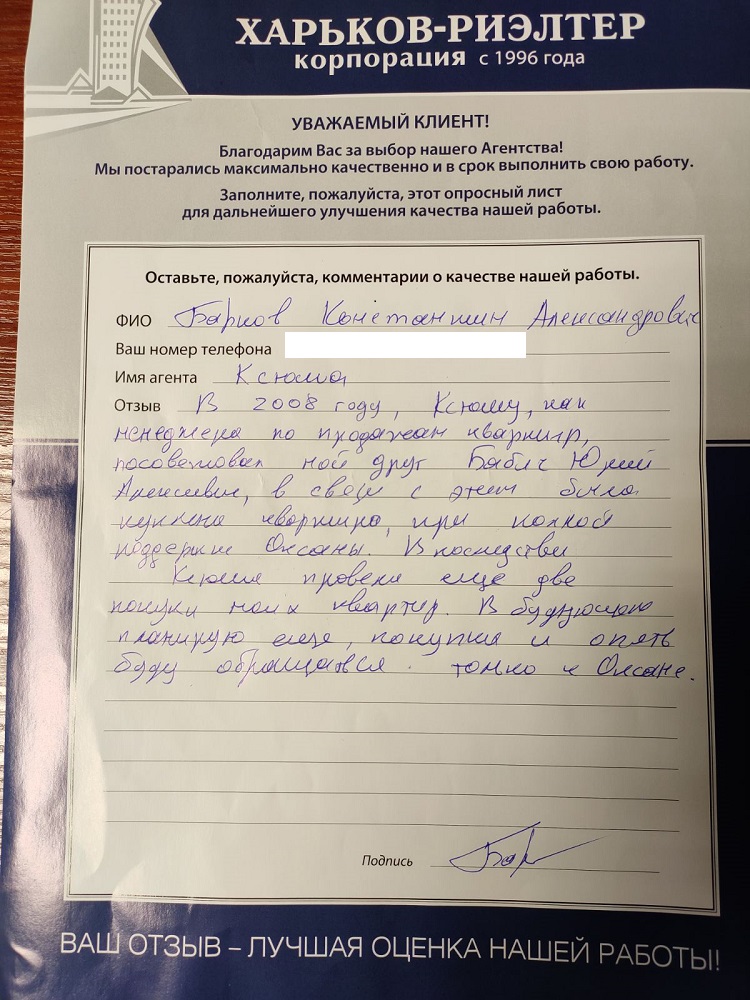 ХАРЬКОВ-РИЭЛТЕР
корпорация с 1996 года
УВАЖАЕМЫЙ КЛИЕНТ!
Благодарим Вас за выбор нашего Агентства!
Мы постарались максимально качественно и в срок выполнить свою работу.
Заполните, пожалуйста, этот опросный лист
для дальнейшего улучшения качества нашей работы.
Оставьте, пожалуйста, комментарии о качестве нашей работы.
ФИО Барков Константин Александрович
Ваш номер телефона
Имя агента Ксюша
Отзыв В 2008 году, Ксюшу, как
менеджера по продажам квартир,
посоветовал мой друг Бабич Юрий
Алексеевич, в связи с этим была
куплена квартира, при полной
поддержке Оксаны. В последствии
Ксюша провела еще две
покупки моих квартир. В будующем
планирую еще, покупки и опять
буду обращатся. только к Оксане.
Подпись Бар
ВАШ ОТЗЫВ – ЛУЧШАЯ ОЦЕНКА НАШЕЙ РАБОТЫ!